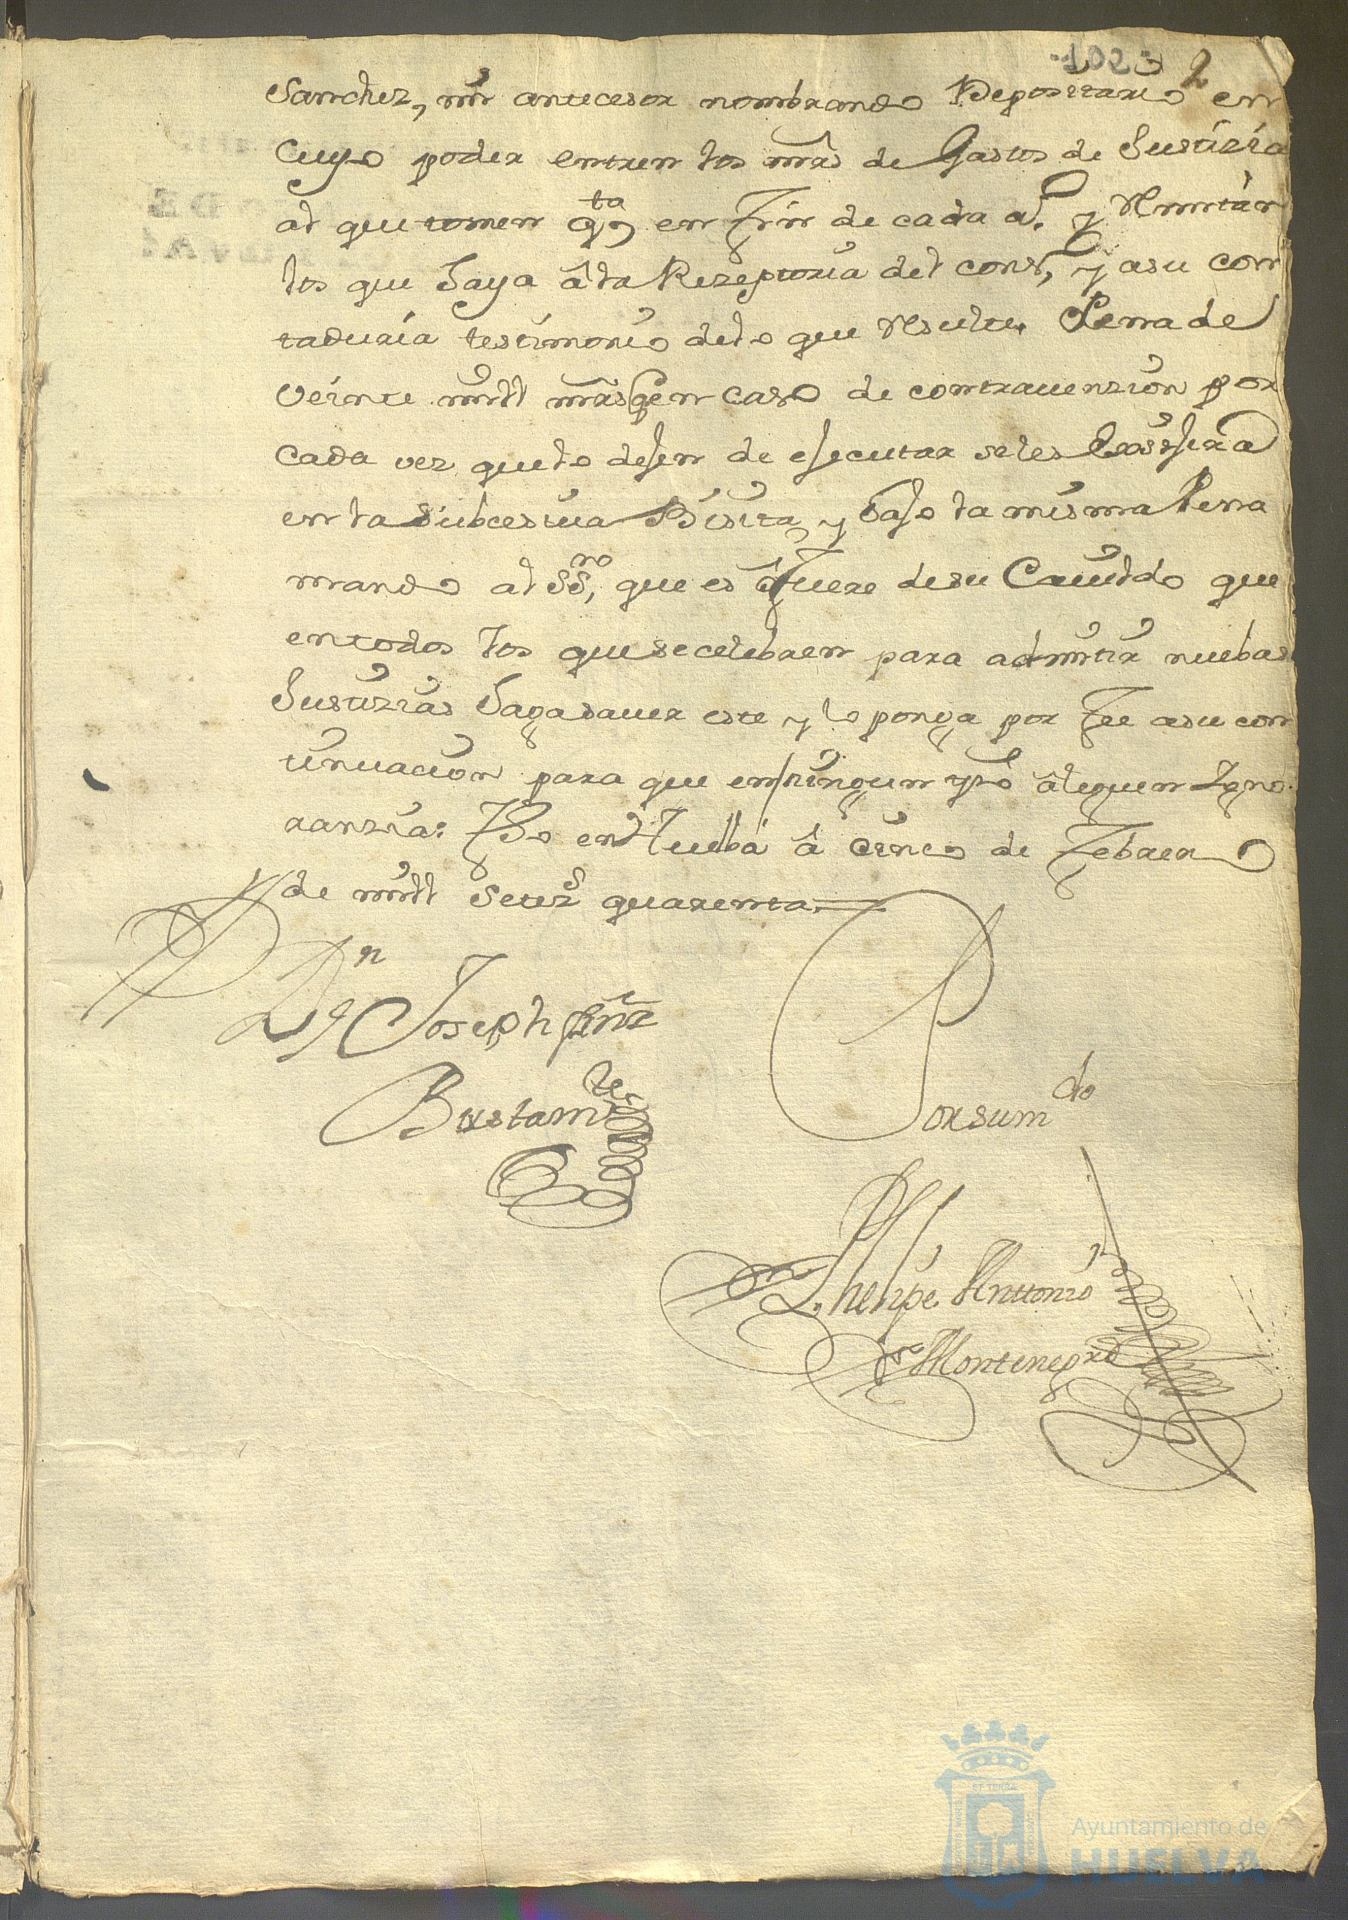 102 2
Sanchez, mi antecesor nombrando Depositario en
Cuyo poder entren los mrs de Gastos de Justizia
al que tomen qta en Fin de cada a. y Remitan
los que haya â la Rezeptoria del cons, y a su con
taduria testimonio de lo que Resulte. Pena de
veinte mill mrs q en caso de contravenzion por
Cada vez que lo dejen de ejecutar se les
en la subcesiva Bisita, y bajo la misma Pena
mando al SSno, que es ô Fuere de su Cavildo que
en todos los que se celebren para admitir nuebas
Justizias haga saver este y lo ponga por Fee a su con
tinuacion para que en ningun tpo âleguen Igno
ranzia: Fho en Huelba â cinco de Febrero
de mill setez quarenta =
Dn Joseph
Bustamte
Por su mdo
Phelipe Anttonio
Montenegro
ET TERRÆ
Ayuntamiento de
HUELVA